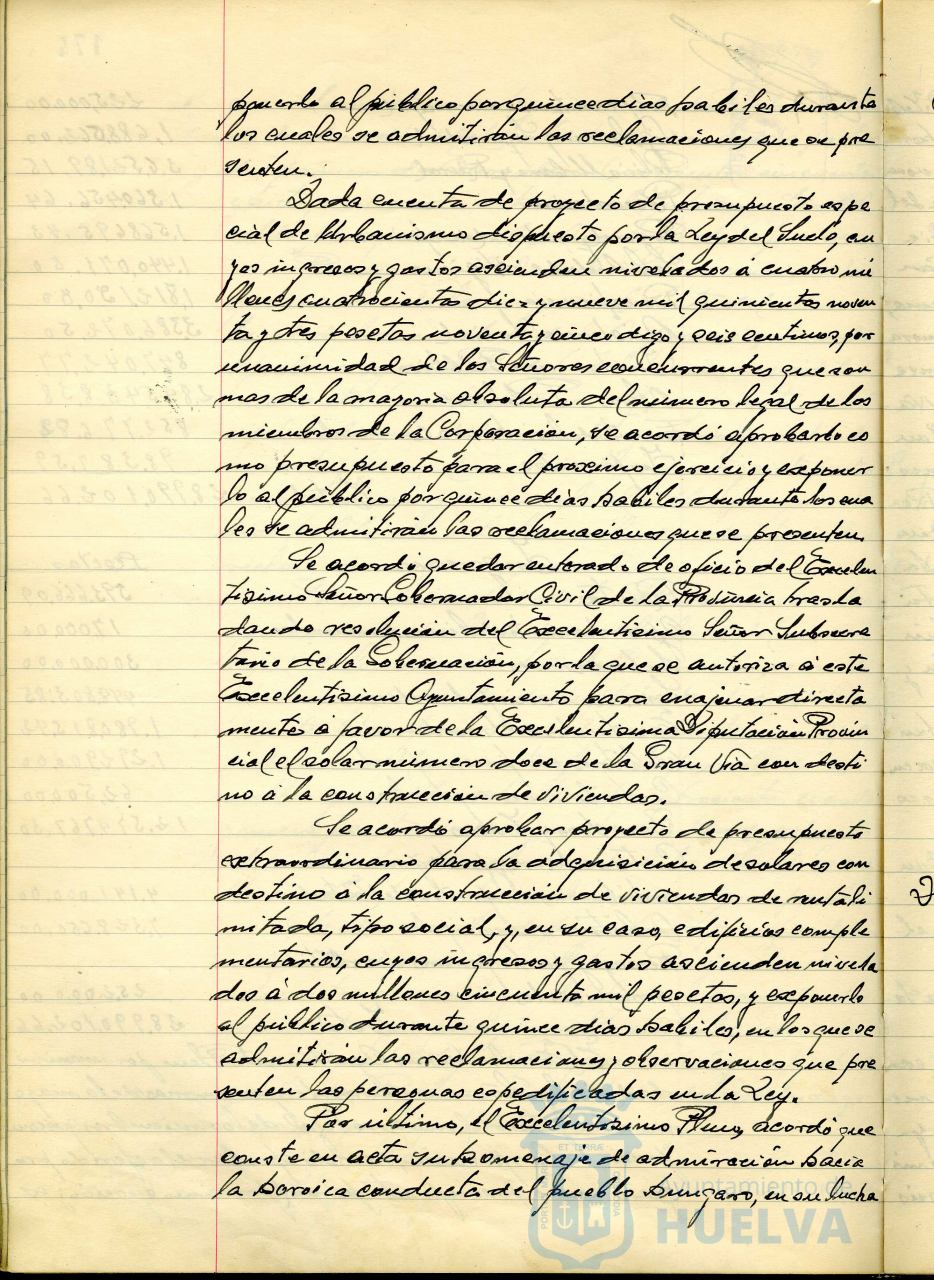 ponerlo al público por quince dias habiles durante
los cuales se admitirán las reclamaciones que se pre
senten.
Dada cuenta de proyecto de presupuesto espe
cial de Urbanismo dispuesto por la Ley del Suelo, cu
yos ingresos y gastos ascienden nivelados á cuatro mi
llones cuatrocientas diez y nueve mil quinientas noven
ta y tres pesetas noventa y cinco digo y seis centimos, por
unanimidad de los Señores concurrentes que son
mas de la mayoria absoluta del número legal de los
miembros de la Corporación, se acordó aprobarlo co
mo presupuesto para el proximo ejercicio y exponer
lo al público por quince dias habiles durante los cua
les se admitirán las reclamaciones que se presenten.
Se acordó quedar enterado de oficio del Excelen
tisimo Señor Gobernador Civil de la Provincia trasla
dando resolución del Excelentisimo Señor Subsecre
tario de la Gobernación, por la que se autoriza á este
Excelentisimo Ayuntamiento para enajenar directa
mente á favor de la Excelentisima Diputación Provin
cial el solar número doce de la Gran Via con desti
no á la construcción de viviendas.
Se acordó aprobar proyecto de presupuesto
extraordinario para la adquisición de solares con
destino á la construcción de viviendas de renta li
mitada, tipo social, y, en su caso, edificios comple
mentarios, cuyos ingresos y gastos ascienden nivela
dos á dos millones cincuenta mil pesetas, y exponerlo
al público durante quince dias habiles, en los que se
admitirán las reclamaciones y observaciones que pre
senten las personas especificadas en la Ley.
Por último, el Excelentisimo Pleno, acordó que
conste en acta su homenaje de admiración hacia
la heroica conducta del pueblo hungaro, en su lucha
Ayuntamiento de
HUELVA